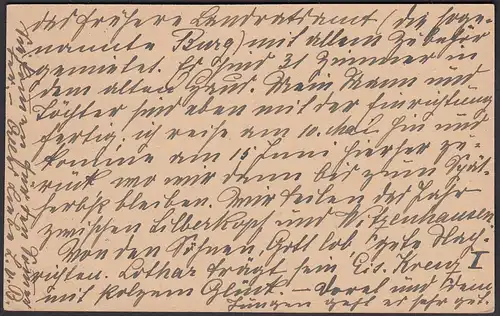 das frühere Landratsamt (die soge-
nannte Burg) mit allem Zubehör
gemietet. Es sind 31 Zimmer in
dem alten Haus. Mein Mann und
Töchter sind eben mit der Einrichtung
fertig, ich reise am 10. Mai hin und
komme am 15 Juni hierher zu-
rück wo wir dann bis zum Spät-
herbst bleiben. Wir teilen das Jahr
zwischen Silberkopf und Witzenhausen.
Von den Söhnen, Gott lob, gute Nach-
richten. Lothar trägt sein Eis. Kreuz I
mit stolzem Glück. – Dorel und dem
Jungen geht es sehr gut.